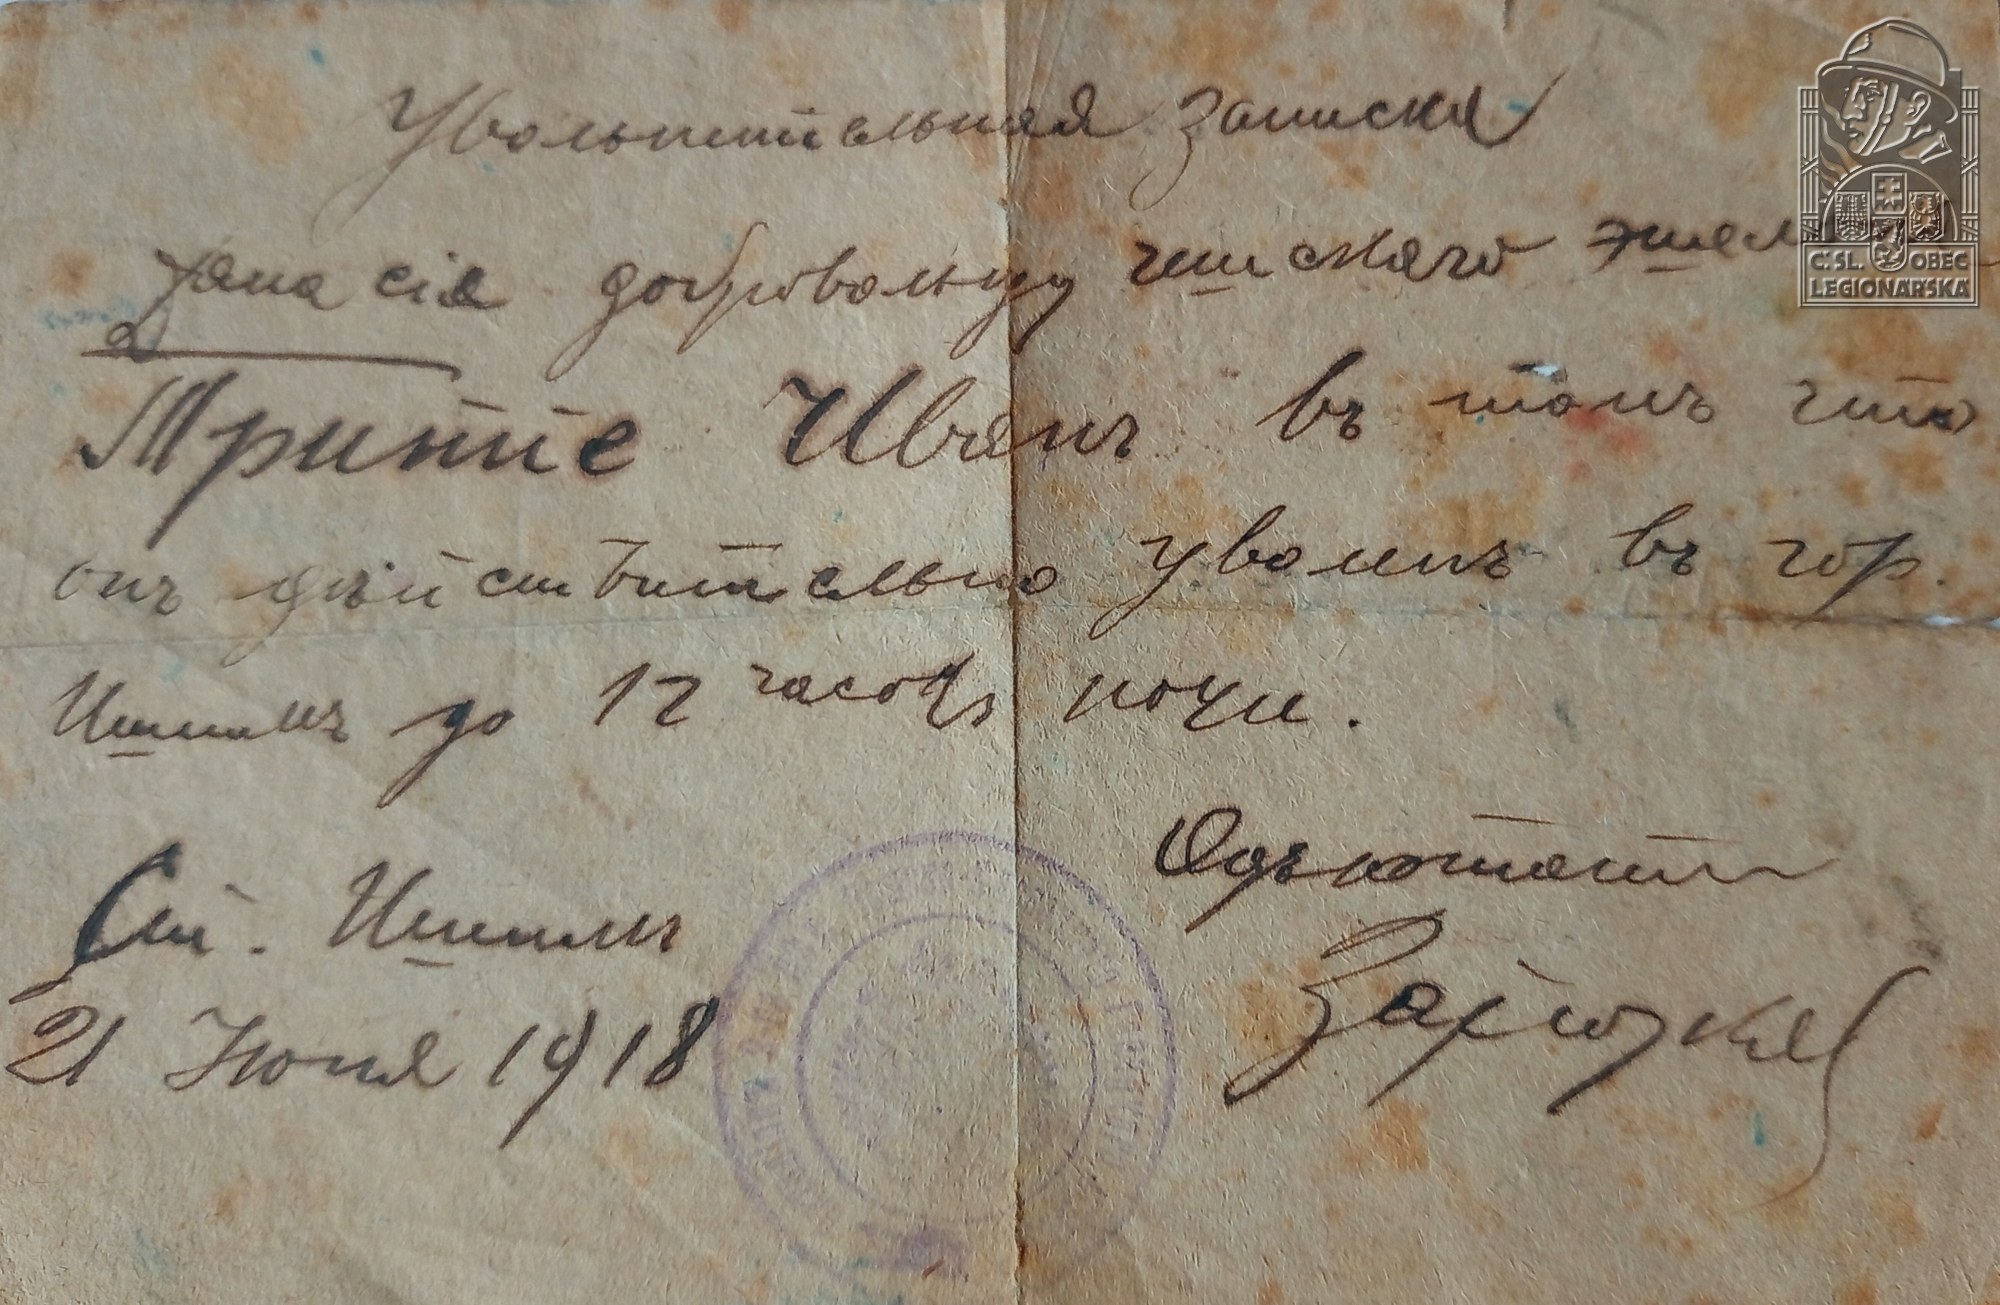 Увольнительная записка
дана сія добровольцу чешскаго эшел
Тринте Иванъ въ томъ что
онъ дѣйствительно уволенъ въ гор.
Ишимъ до 12 часовъ ночи.
Ст. Ишимъ
21 Июня 1918
Адъютантъ
C.SL. OBEC
LEGIONÁŘSKÁ